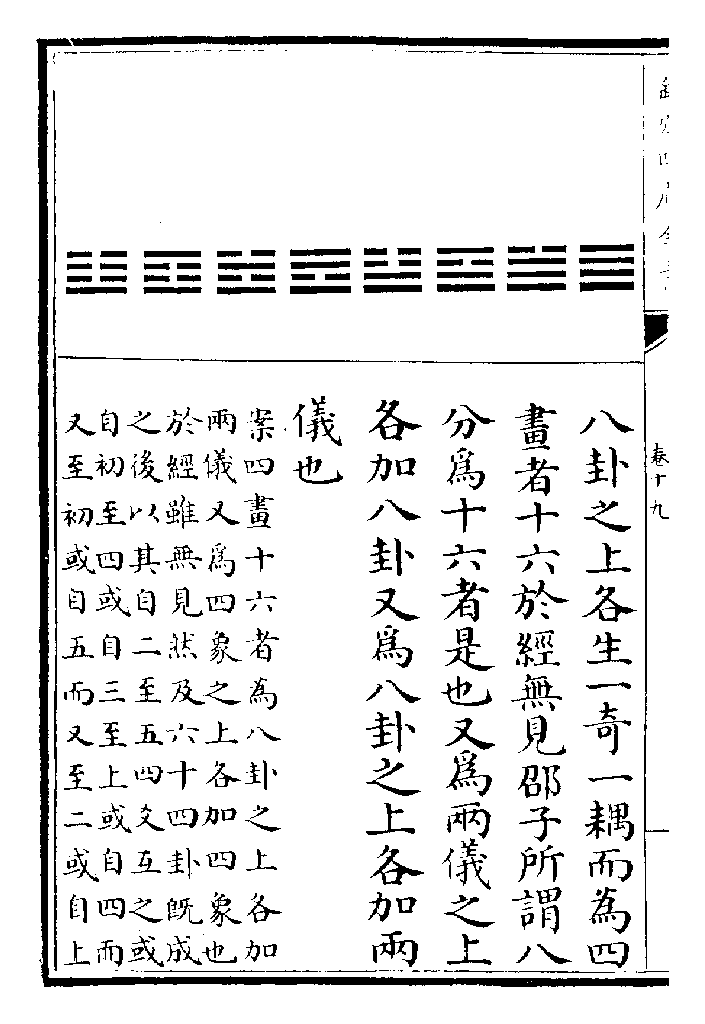 欽定四庫全書
卷十九
八卦之上各生一奇一耦而為四
畫者十六於經無見邵子所謂八
分爲十六者是也又爲兩儀之上
各加八卦又爲八卦之上各加兩
儀也
案四畫十六者為八卦之上各加
兩儀又爲四象之上各加四象也
於經雖無見然及六十四卦既成
之後以其自二至五四爻互之或
自初至四或自三至上或自四而
又至初或自五而又至二或自上